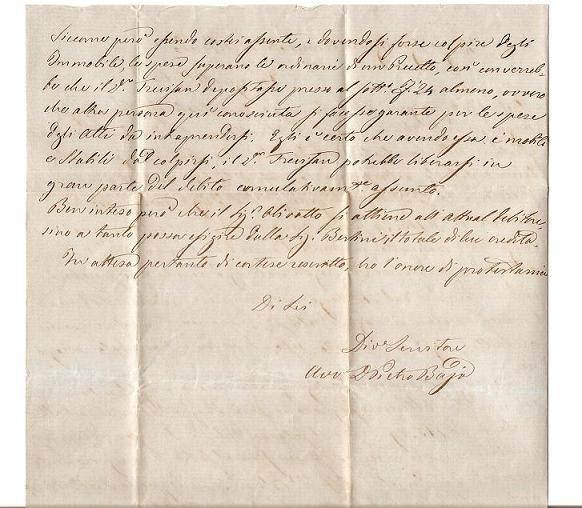 Siccome però essendo costei assente, e dovendosi forse colpire degli
Immobili, le spese superano le ordinarie di un Precetto, così converreb-
be che il Sr. Trevisan depositasse presso al sottto. 24 almeno, ovvero
che altra persona qui conosciuta si facesse garante per le spese
degli Atti da intraprendersi. Egli è certo che avendo essa e mobili
e Stabili da colpirsi, il Sr. Trevisan potrebbe liberarsi in
gran parte del debito cumulativamte assunto.
Ben inteso però che il Sigr. Olivotto si attiene all'attual debitore,
sino a tanto possa esigere dalla Sigr. Bertini il totale di lui credito.
In attesa pertanto di cortese riscontro, ho l'onore di protestarmi
Di Lei
Divo Servitore
Avv. Pietro